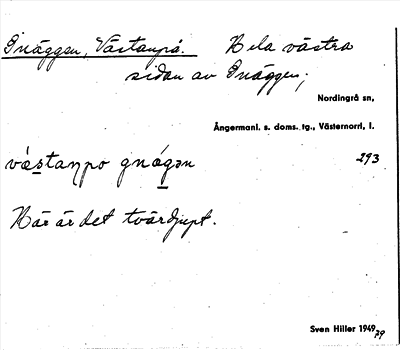 Gnäggen, Västanpå. Hela västra
sidan av Gnäggen;
Nordingrå sn,
Ångermanl. s. doms. tg., Västernorrl, l.
västanpo gnágən 293
Här är det tvärdjupt.
Sven Hiller 1949
79